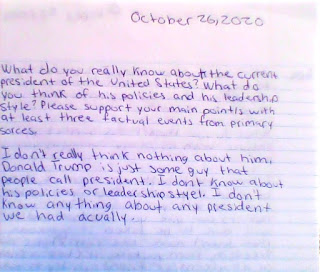 October 26,2020
What do you really know about the current
president of the United States? What do
you think of his policies and his leadership
style? Please support your main point/s with
at least three factual events from primary
sorces.
I don't really think nothing about him,
Donald Trump is just some guy that
people call president. I dont know about
his policies or leadership styel. I don't
know anything about any president
we had acually.